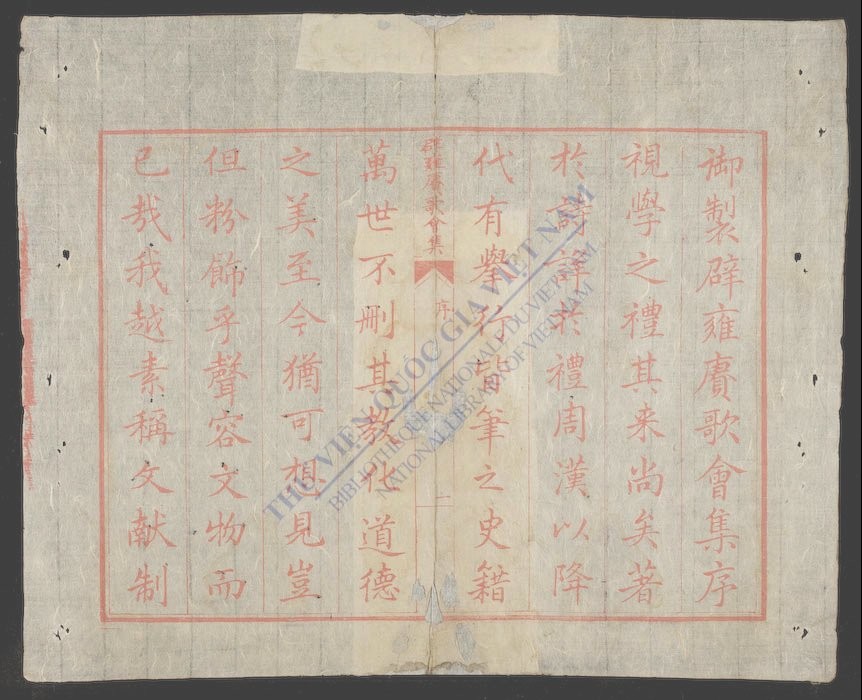 御製辟雍賡歌會集序
視學之禮其来尚矣著
於詩詳於禮周漢以降
代有舉行皆筆之史籍
辟雍賡歌會集
序
二
萬世不刪其教化道德
之美至今猶可想見豈
但粉飾乎聲容文物而
已哉我越素稱文献制
THƯ VIỆN QUỐC GIA VIỆT NAM
BIBLIOTHEQUE NATIONALE DU VIETNAM
NATIONAL LIBRARY OF VIETNAM